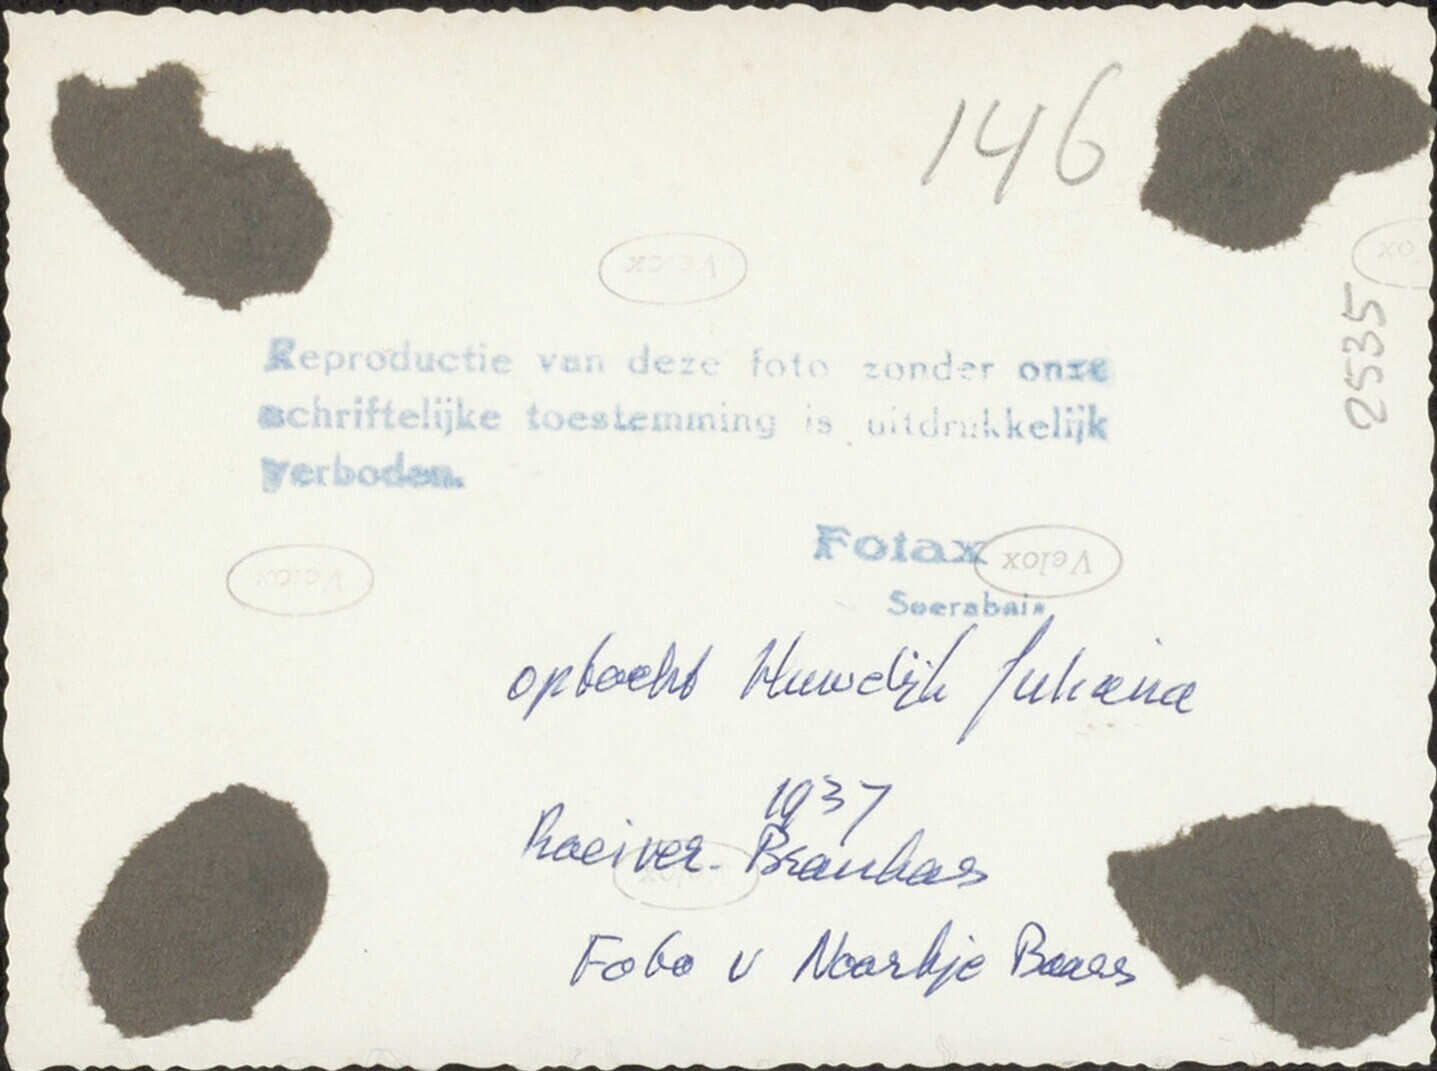 146
Velox
Velox
2535
Reproductie van deze foto zonder onze
schriftelijke toestemming is uitdrukkelijk
verboden.
Fotax
Velox
Velox
Soerabaia
optocht Huwelijk Juliana
1937
Roeiver. Brantas
Velox
Foto v Noortje Baars